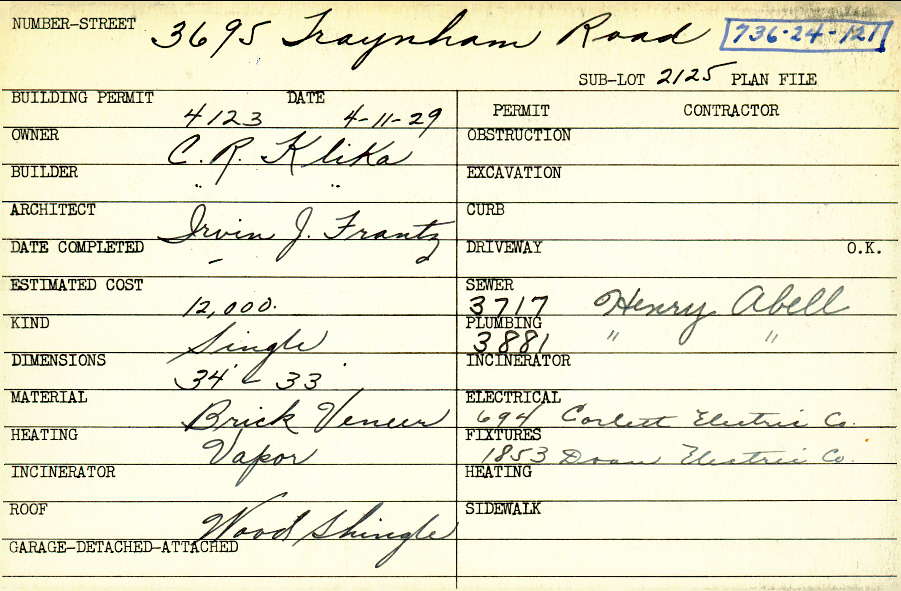 NUMBER-STREET 3695 Traynham Road 736-24-121
SUB-LOT 2125 PLAN FILE
BUILDING PERMIT 4123 DATE 4-11-29
OWNER C. R. Klika
BUILDER " "
ARCHITECT Irvin J. Frantz
DATE COMPLETED -
ESTIMATED COST 12,000.
KIND Single
DIMENSIONS 34' - 33'
MATERIAL Brick Veneer
HEATING Vapor
INCINERATOR
ROOF Wood Shingle
GARAGE-DETACHED-ATTACHED
PERMIT CONTRACTOR
OBSTRUCTION
EXCAVATION
CURB
DRIVEWAY O.K.
SEWER 3717 Henry Abell
PLUMBING 3881 " "
INCINERATOR
ELECTRICAL 694 Corlett Electric Co.
FIXTURES 1853 Doan Electric Co.
HEATING
SIDEWALK